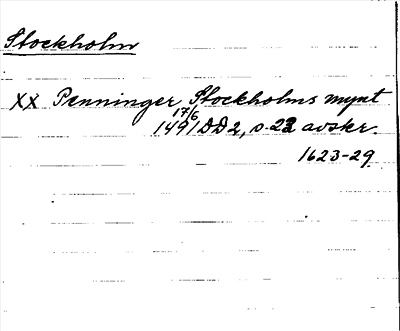 Stockholm
XX Penninger, Stockholms mynt
17/6
1491 DD2, s. 22 avskr.
1623-29.